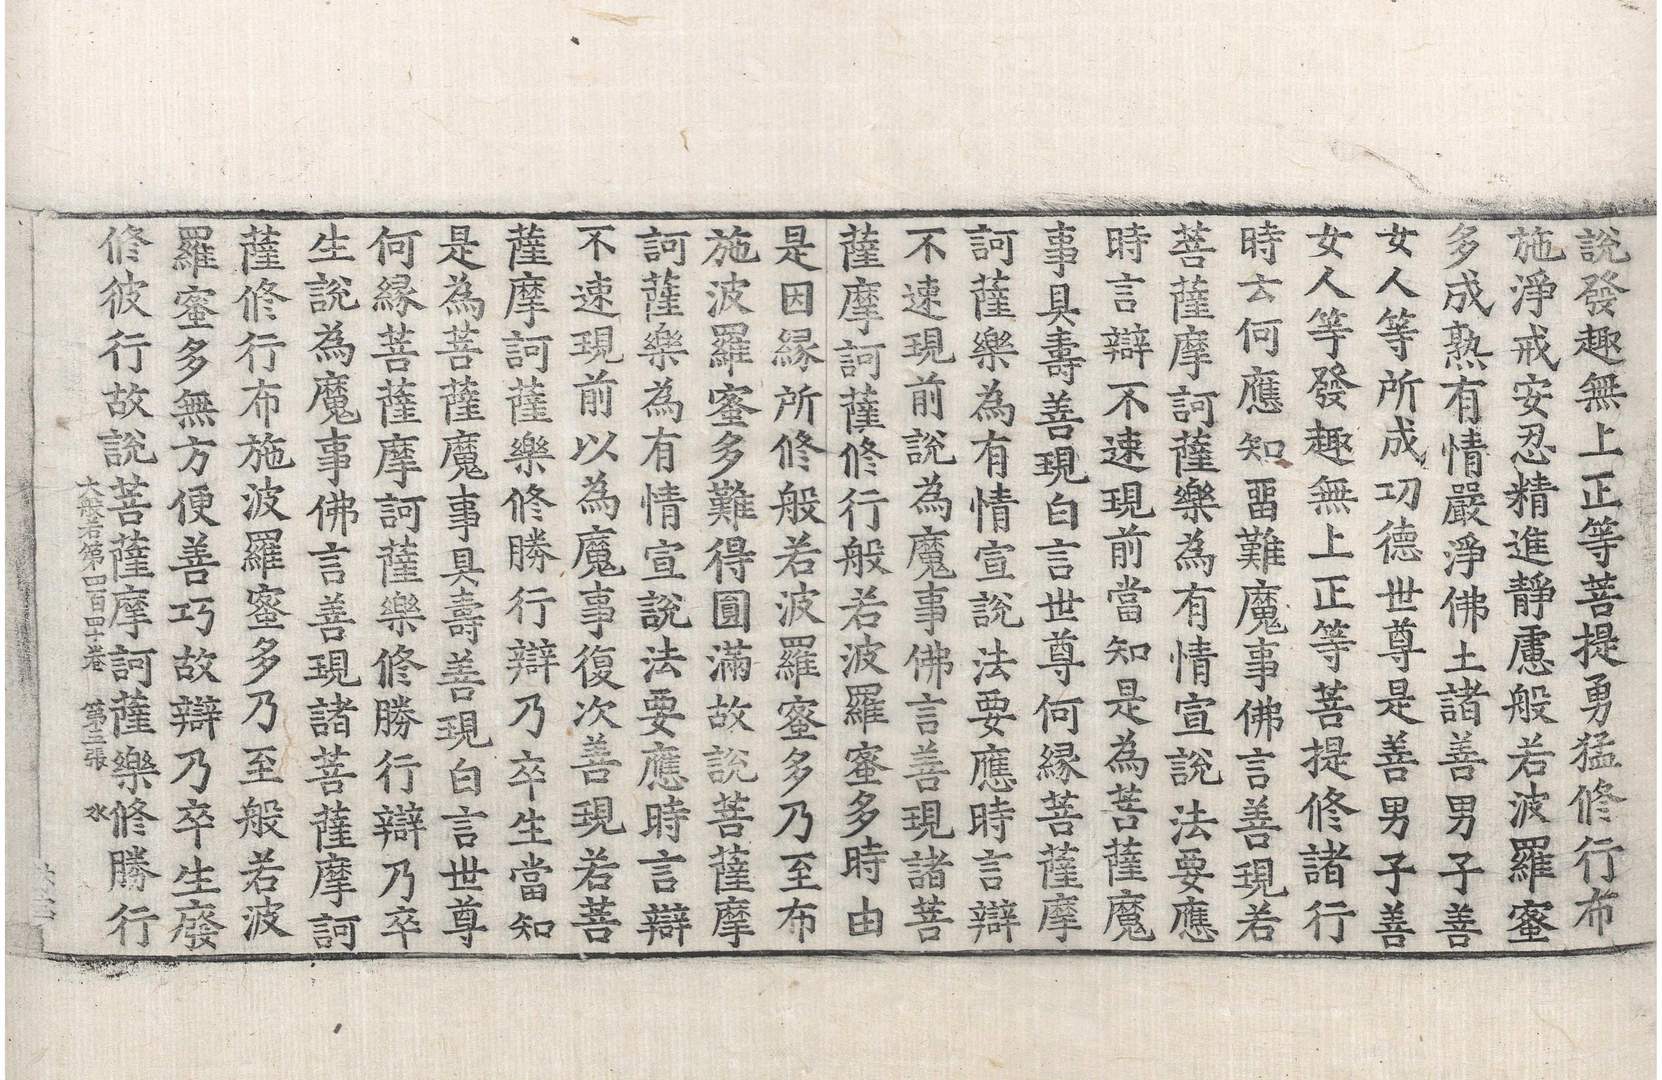 說發趣無上正等菩提勇猛修行布
施淨戒安忍精進靜慮般若波羅蜜
多成熟有情嚴淨佛土諸善男子善
女人等所成功德世尊是善男子善
女人等發趣無上正等菩提修諸行
時云何應知留難魔事佛言善現若
菩薩摩訶薩樂為有情宣說法要應
時言辯不速現前當知是為菩薩魔
事具壽善現白言世尊何緣菩薩摩
訶薩樂為有情宣說法要應時言辯
不速現前說為魔事佛言善現諸菩
薩摩訶薩修行般若波羅蜜多時由
是因緣所修般若波羅蜜多乃至布
施波羅蜜多難得圓滿故說菩薩摩
訶薩樂為有情宣說法要應時言辯
不速現前以為魔事復次善現若菩
薩摩訶薩樂修勝行辯乃卒生當知
是為菩薩魔事具壽善現白言世尊
何緣菩薩摩訶薩樂修勝行辯乃卒
生說為魔事佛言善現諸菩薩摩訶
薩修行布施波羅蜜多乃至般若波
羅蜜多無方便善巧故辯乃卒生廢
修彼行故說菩薩摩訶薩樂修勝行
大般若第四百四十卷 第三張 水